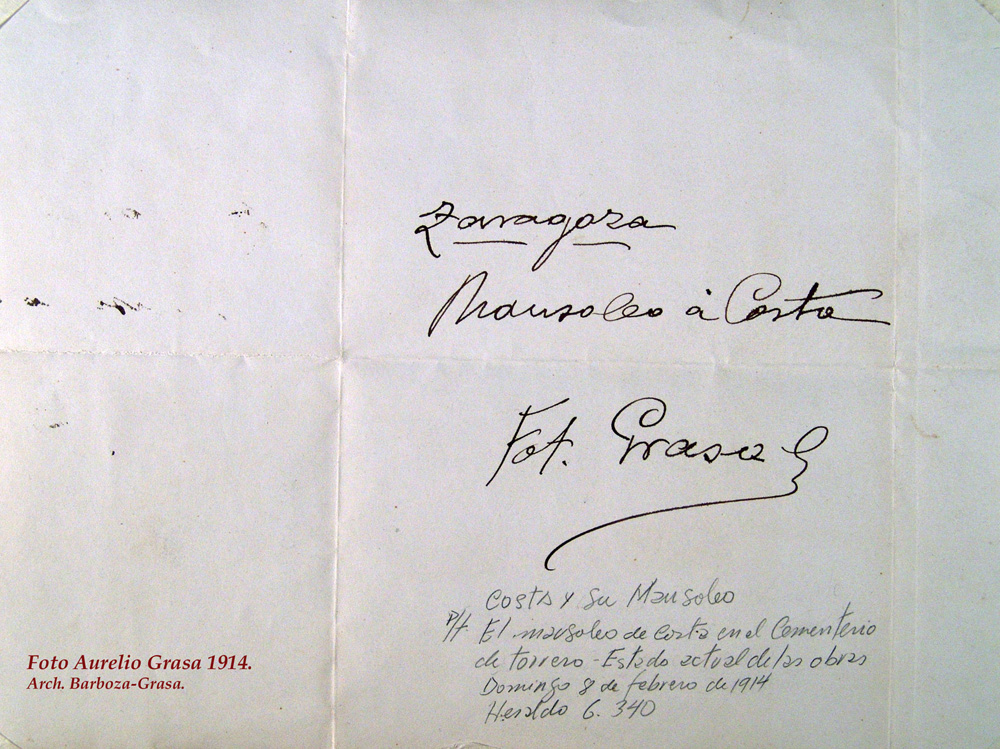 Zaragoza
Mausoleo á Costa
Fot. Grasa
Costa y su Mausoleo
P/H El mausoleo de Costa en el Cementerio
de torrero - Estado actual de las obras
Domingo 8 de febrero de 1914
Heraldo 6.340
Foto Aurelio Grasa 1914.
Arch. Barboza-Grasa.